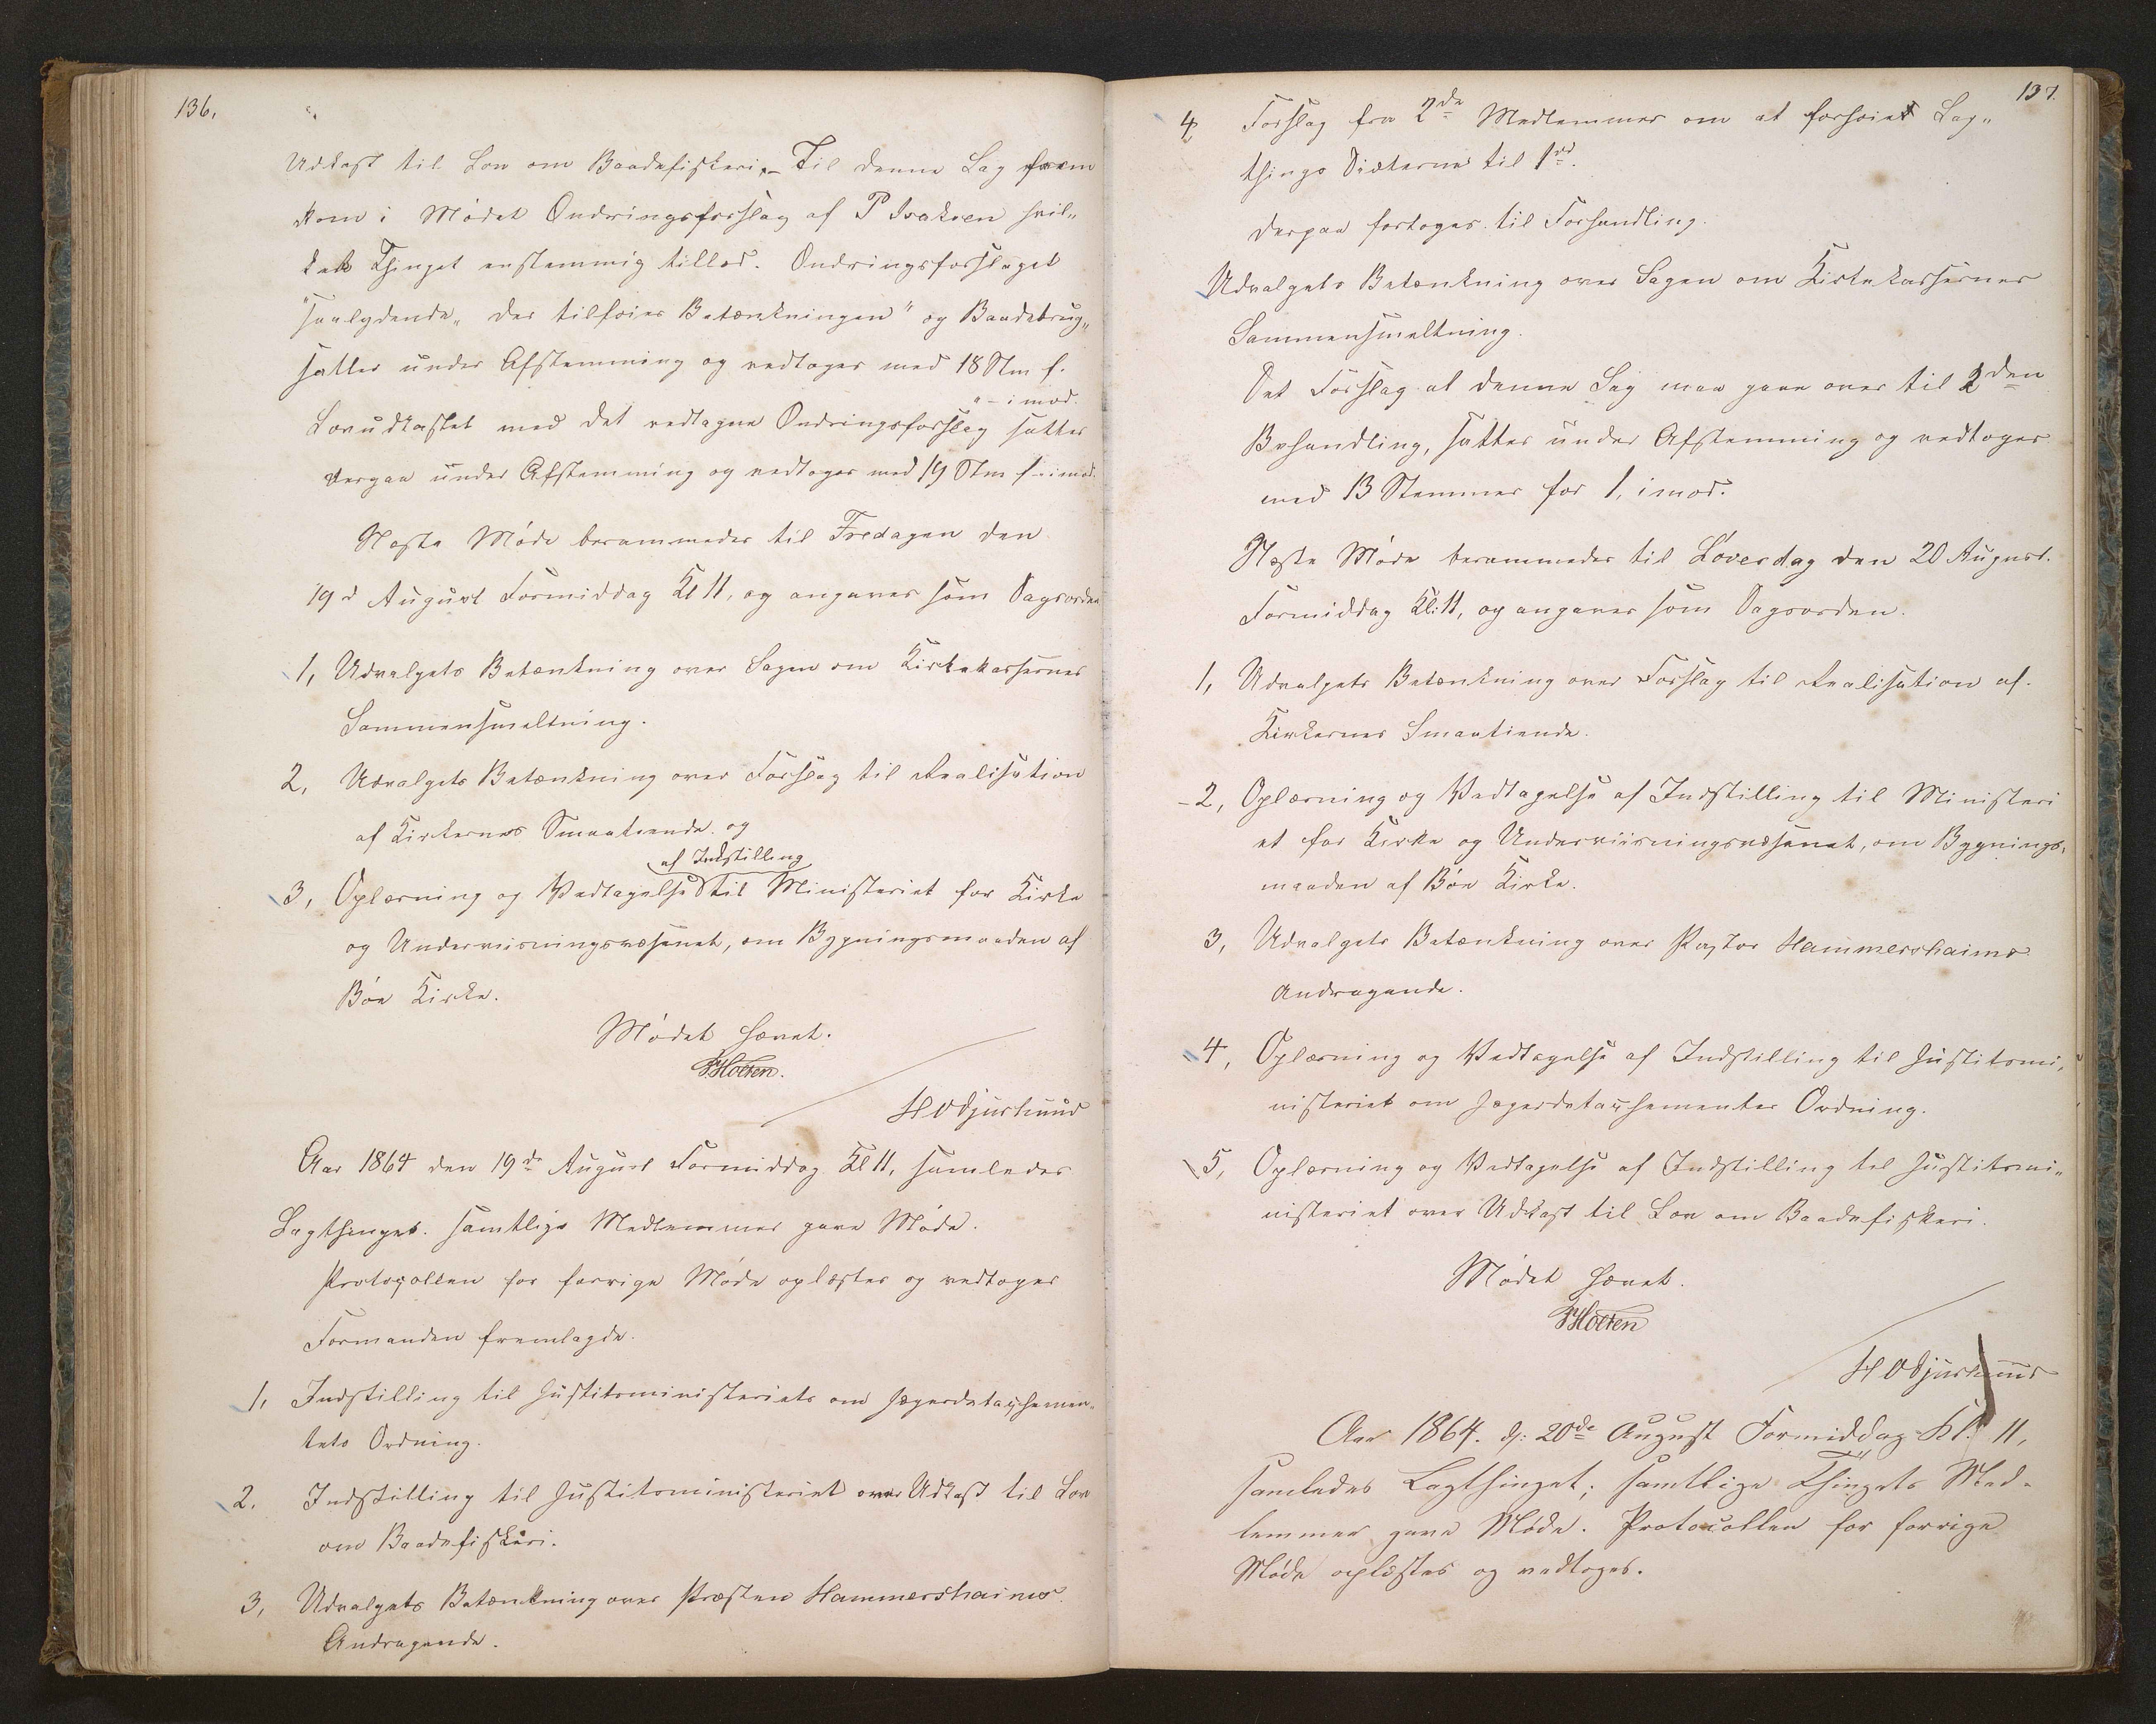 136.
Udkast til Lov om Baadefiskeri,- Til denne Sag frem
kom i Mødet Ændringsforslag af P Isaksen hvil„
ket Thinget enstemmig tillod. Ændringsforslaget
saalydende „der tilføies Betænkningen" og Baadebrug„
sattes under Afstemning og vedtoges med 18 Stm f.
" - imod.
Lovudkastet med det vedtagne Ændringsforslag sattes
derpaa under Afstemning og vedtoges med 19 Stm f - imod.
Næste Møde berammedes til Fredagen den
19d August Formiddag Kl 11, og angaves som Dagsorden
1, Udvalgets Betænkning over Sagen om Kirkekassernes
Sammensmeltning.
2, Udvalgets Betænkning over Forslag til Realisation
af Kirkernes Smaatiende og
af Indstilling
3, Oplæsning og Vedtagelse til Ministeriet for Kirke
og Underviisningsvæsenet, om Bygningsmaaden af
Bøe Kirke.
Mødet hævet.
HHolten.
H O Djurhuus
Aar 1864 den 19de August Formiddag Kl 11, samledes
Lagthinget. samtlige Medlemmer gave Møde.
Protocollen for forrige Møde oplæstes og vedtoges
Formanden fremlagde.
1, Indstilling til Justitsministeriets om Jægerdetachemen„
tets Ordning.
2. Indstilling til Justitsministeriet over Udkast til Lov
om Baadefiskeri.
3, Udvalgets Betænkning over Præsten Hammershaims
Andragende.
137.
4, Forslag fra 2de Medlemmer om at forhøie Lag„
things Diæterne til 1rd.
derpaa foretoges til Forhandling.
Udvalgets Betænkning over Sagen om Kirkekassernes
Sammensmeltning.
Det Forslag at denne Sag maa gaae over til 2den
Behandling, sattes under Afstemning og vedtoges
med 13 Stemmer for 1, imod.
Næste Møde berammedes til Løverdag den 20 August.
Formiddag Kl: 11, og angaves som Dagsorden.
1, Udvalgets Betænkning over Forslag til Realisation af
Kirkernes Smaatiende.
2, Oplæsning og Vedtagelse af Indstilling til Ministeri
et for Kirke og Underviisningsvæsenet, om Bygnings„
maaden af Bøe Kirke.
3, Udvalgets Betænkning over Pastor Hammershaims
Andragende.
4, Oplæsning og Vedtagelse af Indstilling til Justitsmi„
nisteriet om Jægerdetachementes Ordning.
5, Oplæsning og Vedtagelse af Indstilling til Justitsmi„
nisteriet over Udkast til Lov om Baadefiskeri.
Mødet hævet.
HHolten
H O Djurhuus
Aar 1864. d: 20de August Formiddag Kl. 11,
samledes Lagthinget; samtlige Thingets Med-
lemmer gave Møde. Protocollen for forrige
Møde oplæstes og vedtoges.